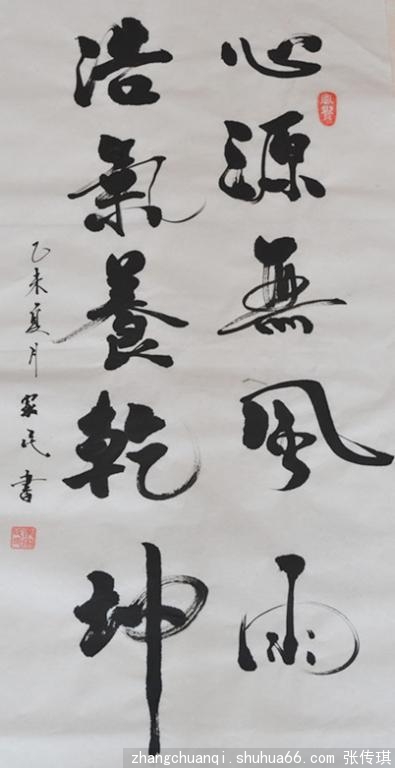 心源無風雨
浩氣養乾坤
乙未夏月 家民書
zhangchuanqi.shuhua66.com 张传琪